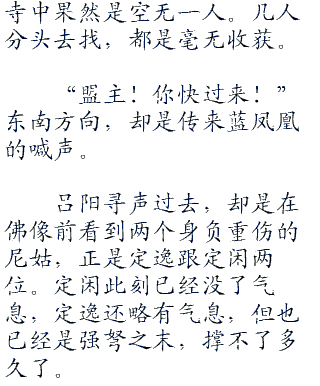 寺中果然是空无一人。几人
分头去找，都是毫无收获。
“盟主！你快过来！”
东南方向，却是传来蓝凤凰
的喊声。
吕阳寻声过去，却是在
佛像前看到两个身负重伤的
尼姑，正是定逸跟定闲两
位。定闲此刻已经没了气
息，定逸还略有气息，但也
已经是强弩之末，撑不了多
久了。